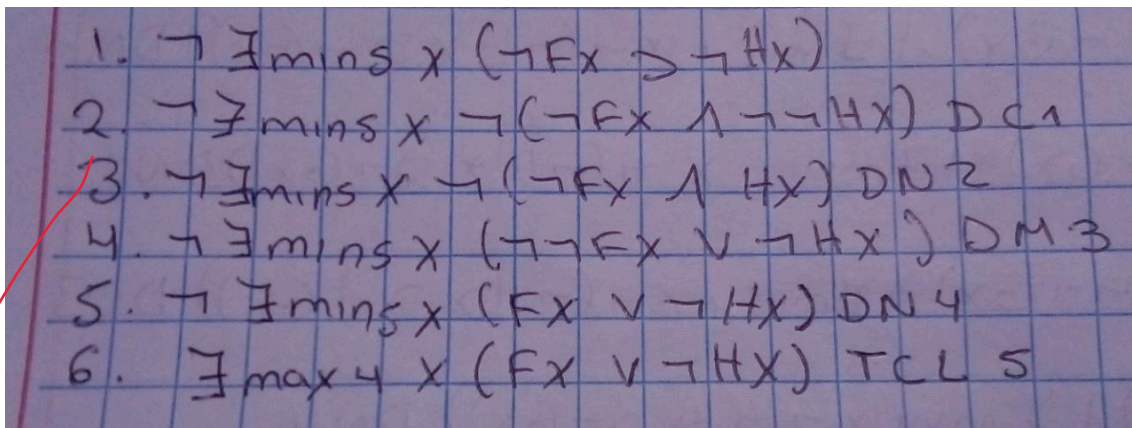 1. ¬ ∃mins x (¬Fx ⊃ ¬Hx)
2. ¬ ∃mins x ¬(¬Fx ∧ ¬¬Hx) DC1
3. ¬ ∃mins x ¬(¬Fx ∧ Hx) DN2
4. ¬ ∃mins x (¬¬Fx ∨ ¬Hx) DM3
5. ¬ ∃mins x (Fx ∨ ¬Hx) DN4
6. ∃max4 x (Fx ∨ ¬Hx) TCL 5